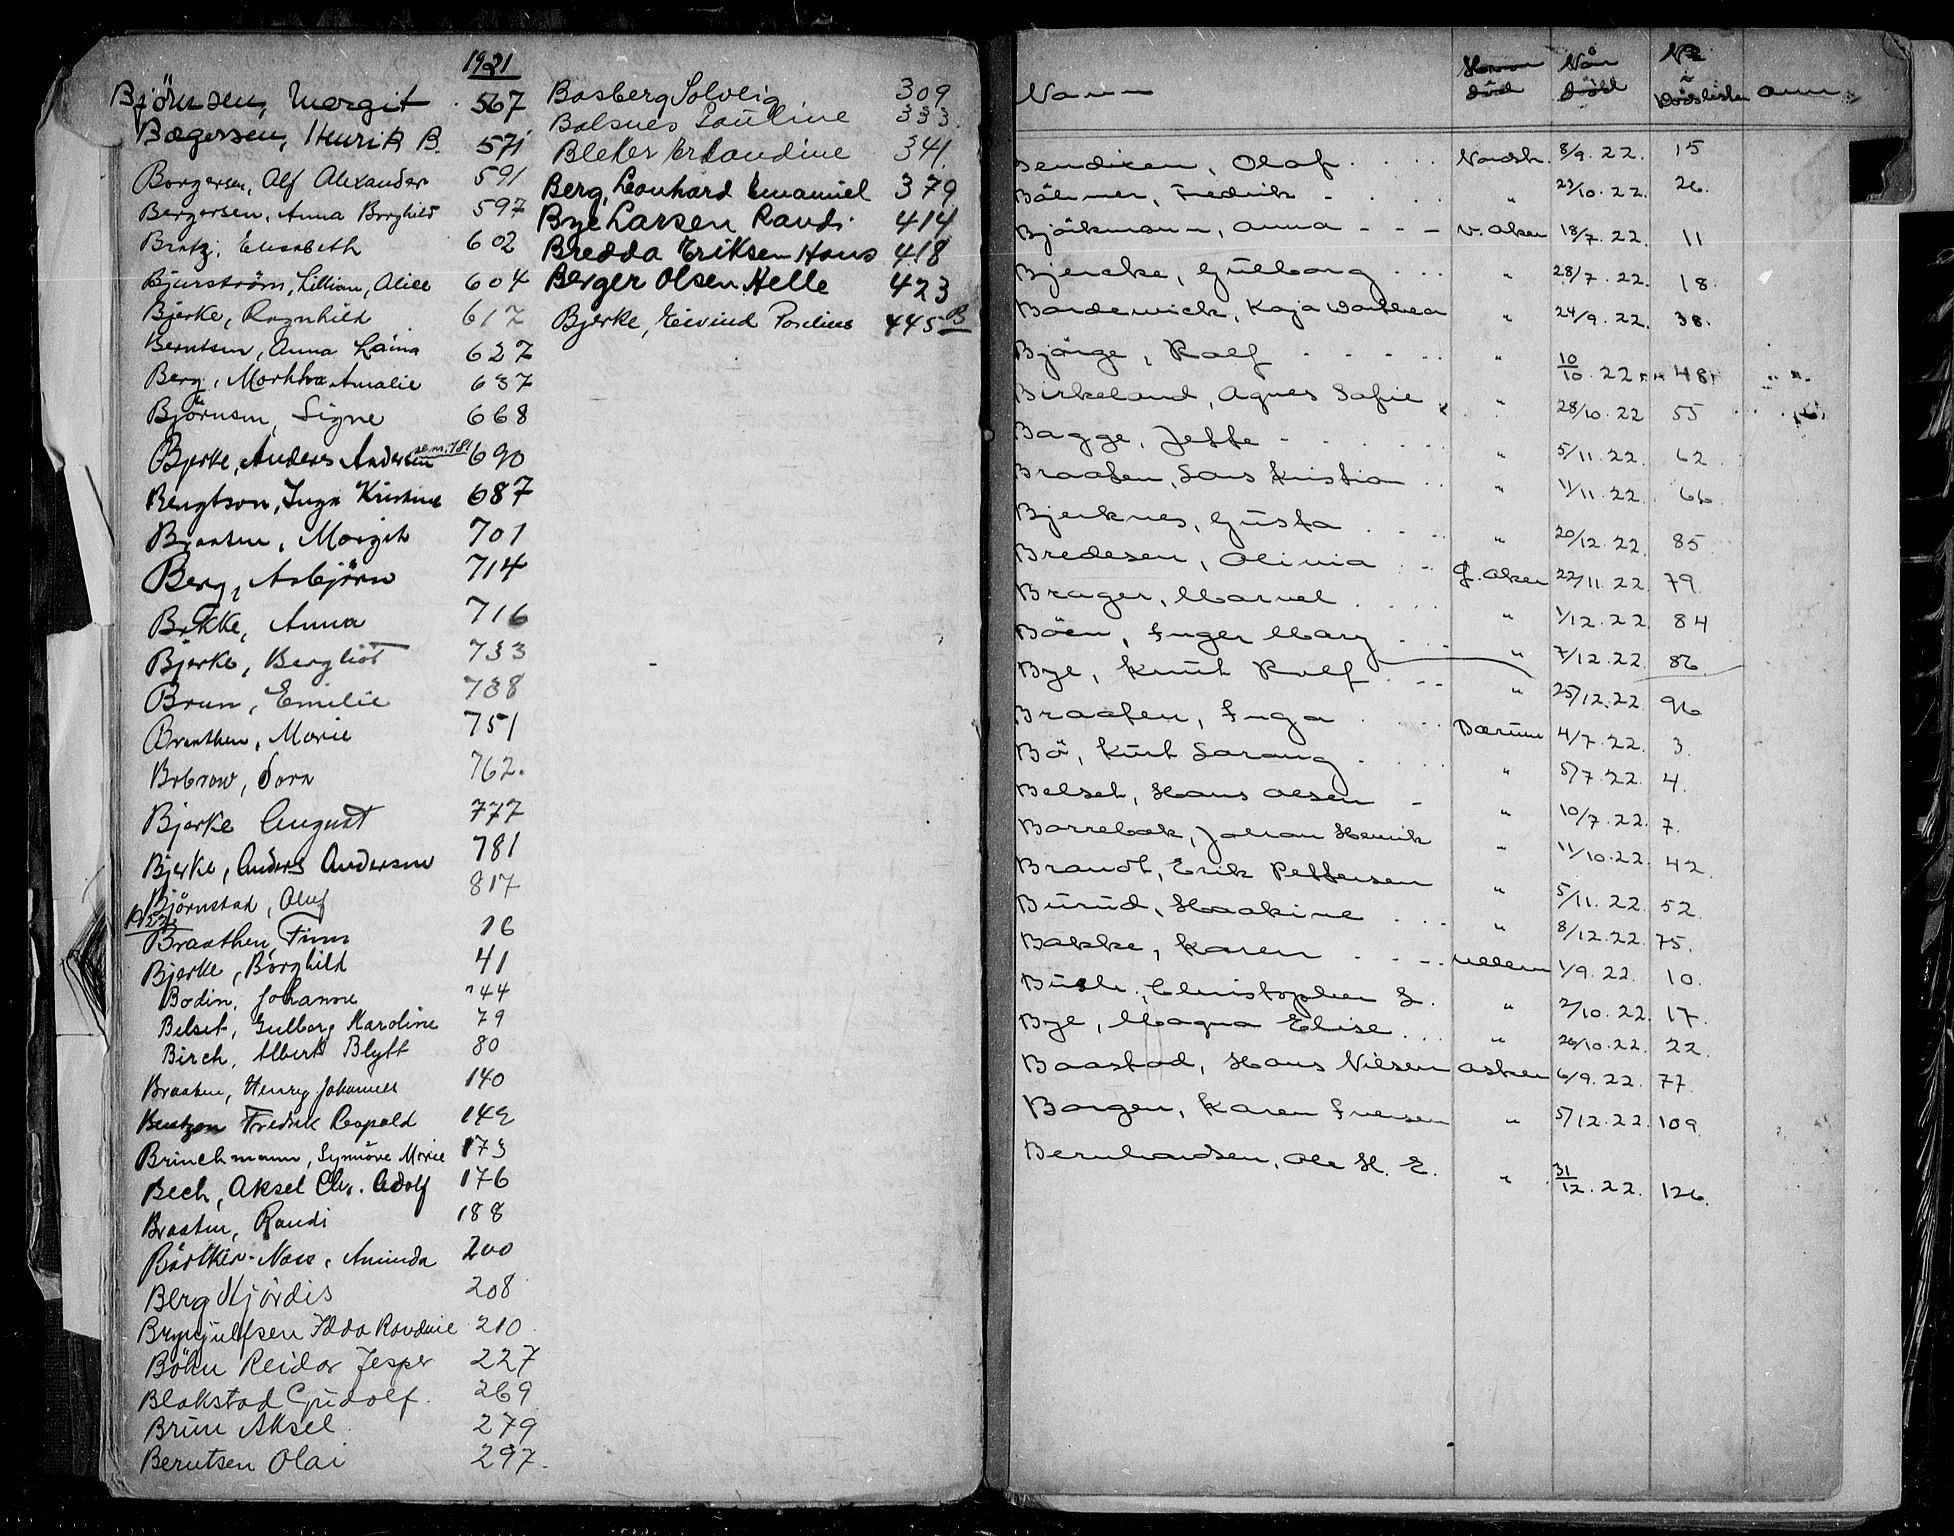 1921
Björnsen, Margit 567
Bægersen, Henrik B. 571
Borgersen, Alf Alexander 591
Bergersen, Anna Borghild 597
Bratz, Elisabeth 602
Bjurström, Lillian, Alice 604
Bjerke, Ragnhild 617
Berntsen, Anna 627
Berg, Amalie 637
Björnsen, Signe 668
Bjerke, Anders Andersen 690
Bengtson, Inga Kristine 687
Braaten, Margit 701
Berg, Asbjörn 714
Bakke, Anna 716
Bjerke, Bergliot 733
Brun, Emilie 738
Braathen, Marie 751
Dora 762.
Bjerke August 777
Bjerke, Anders Andersen 781
Björnstad, Oluf 817
1922
Braathen, Finn 16
Bjerke, Borghild 41
Bodin, Johanne 44
Belset, Gulborg Karoline 79
Birch, Albert Blytt 80
Braaten, Henry Johannes 140
Bentzen Fredrik Leopold 149
Brinchmann, Synnöve Marie 173
Bech, Aksel Chr. Adolf 176
Braaten, Randi 188
Aminda 200
Berg Hjördis 208
Brynjulfsen 210
Böhn Reidar Jesper 227
Blakstad Gudolf. 269
Brun Aksel 279
Berntsen Olai 297.
Basberg Solveig 309
Balsnes Pauline 333.
Bleker 341.
Berg, Leonhard Emanuel 379
Bye Larsen Randi 414
Bredda Eriksen Hans 418
Berger Olsen Helle 423
Bjerke, Eivind 445 B
Navn Når död Nr i dödslisten Anm.
Bendixen, Olaf Nordstr. 8/9. 22. 15
Böhmer, Fredrik " 23/10. 22. 26.
Björkmann, Anna V. Aker 18/7. 22. 11
Bjercke, Gulborg " 28/7. 22. 18.
Bardewick, Kaja " 24/9. 22. 38.
Björge, Ralf " 10/10. 22 48
Birkeland, Agnes Sofie " 28/10. 22 55
Bagge, Jeppe " 5/11. 22. 62
Braaten, Lars Kristian " 11/11. 22 66
Bjerknes, Gusta " 20/12. 22. 85
Bredesen, Olivia Ö. Aker 22/11. 22 79.
Brager, Marvel " 1/12. 22 84
Böen, Inger Mary " 7/12. 22. 86.
Bye, Knut Ralf " 25/12. 22 96
Braaten, Inga Bærum 4/7. 22. 3.
Bö, Kurt " 5/7. 22. 4.
Belset, Hans Olsen " 10/7. 22. 7.
Borrebæk, Johan Henrik " 11/10. 22. 42.
Brandt, Erik Pettersen " 5/11. 22. 52.
Burud, Haakine " 8/12. 22. 75.
Bakke, Karen Ullern 1/9. 22. 10.
Busch, Christopher L. " 2/10. 22. 17.
Bye, Magna Elise " 26/10. 22. 22.
Baastad, Hans Nilsen Asker 6/9. 22. 77.
Borgen, Karen Iversen " 5/12. 22. 109.
Bernhardsen, Ole H. E. " 31/12. 22. 126.